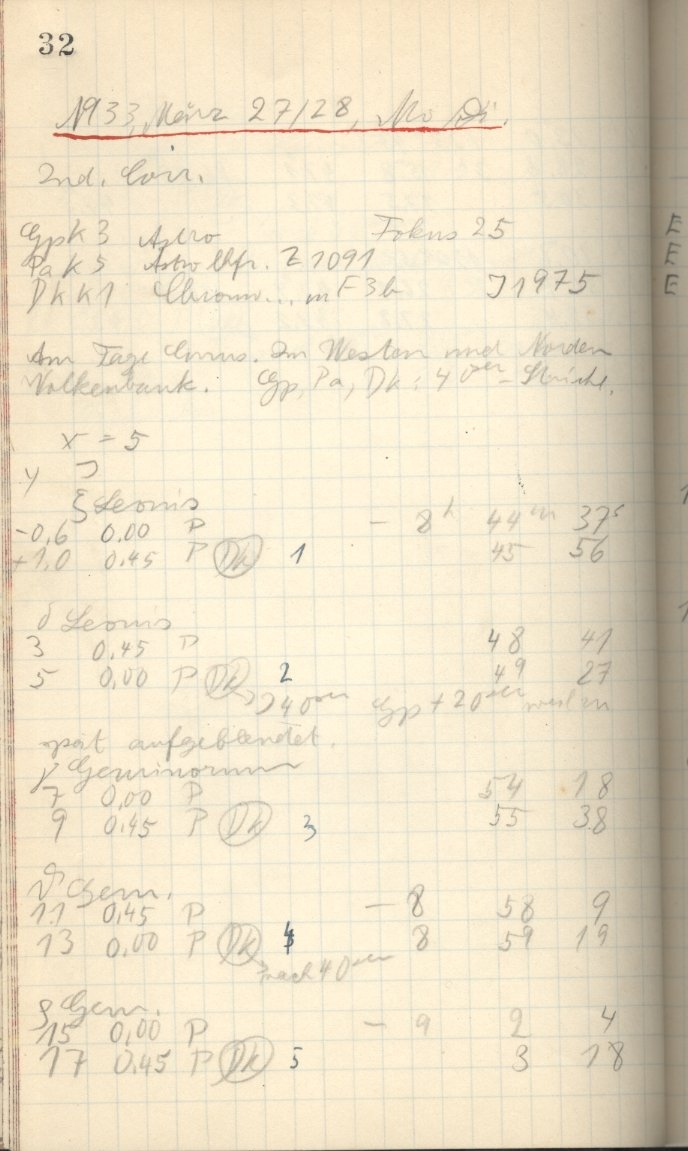 32
1933, März 27/28, Mo Di.
Ind. Corr.
GpK 3 Astro Fokus 25
Pa K 5 Astro Ufr. Z 1091
Dk K1 Chrom... m F3b J 1975
Am Tage Cirrus. Im Westen und Norden
Wolkenbank. Gp, Pa, Dk: 40 sec - Striche.
x = 5
y J
ξ Leonis
-0,6 0.00 P - 8h 44m 37s
+1,0 0.45 P Dk 1 45 56
δ Leonis
3 0.45 P 48 41
5 0,00 P Dk 2 49 27
40 sec Gp + 20 sec
spät aufgeblendet.
γ Geminorum
7 0,00 P 54 18
9 0.45 P Dk 3 55 38
ϑ Gem.
11 0.45 P - 8 58 9
13 0.00 P Dk 4 8 59 19
nach 40 sec
Gem.
15 0,00 P - 9 2 4
17 0.45 P Dk 5 3 18
E
E
E